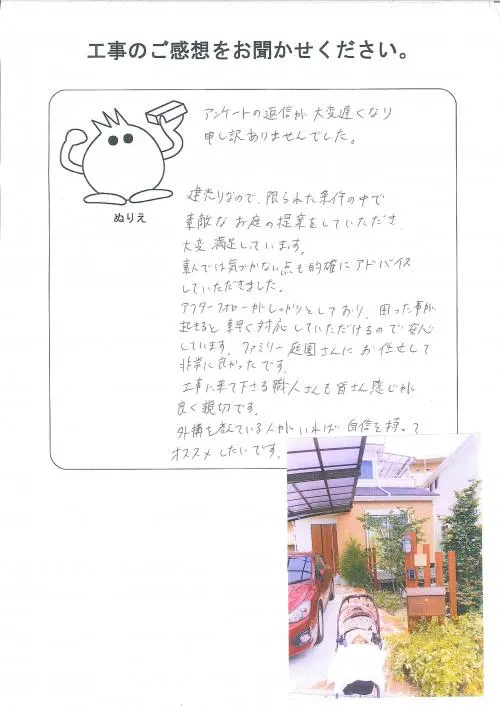 工事のご感想をお聞かせください。
アンケートの返信が大変遅くなり
申し訳ありませんでした。
ぬりえ
建売りなので、限られた条件の中で
素敵なお庭の提案をしていただき、
大変満足しています。
素人では気づかない点も的確にアドバイス
していただきました。
アフターフォローがしっかりとしており、困った事が
起きると早く対応していただけるので安心
しています。ファミリー庭園さんにお任せして
非常に良かったです。
工事に来て下さる職人さんも皆さん感じが
良く親切です。
外構を考えている人がいれば自信を持って
オススメしたいです。